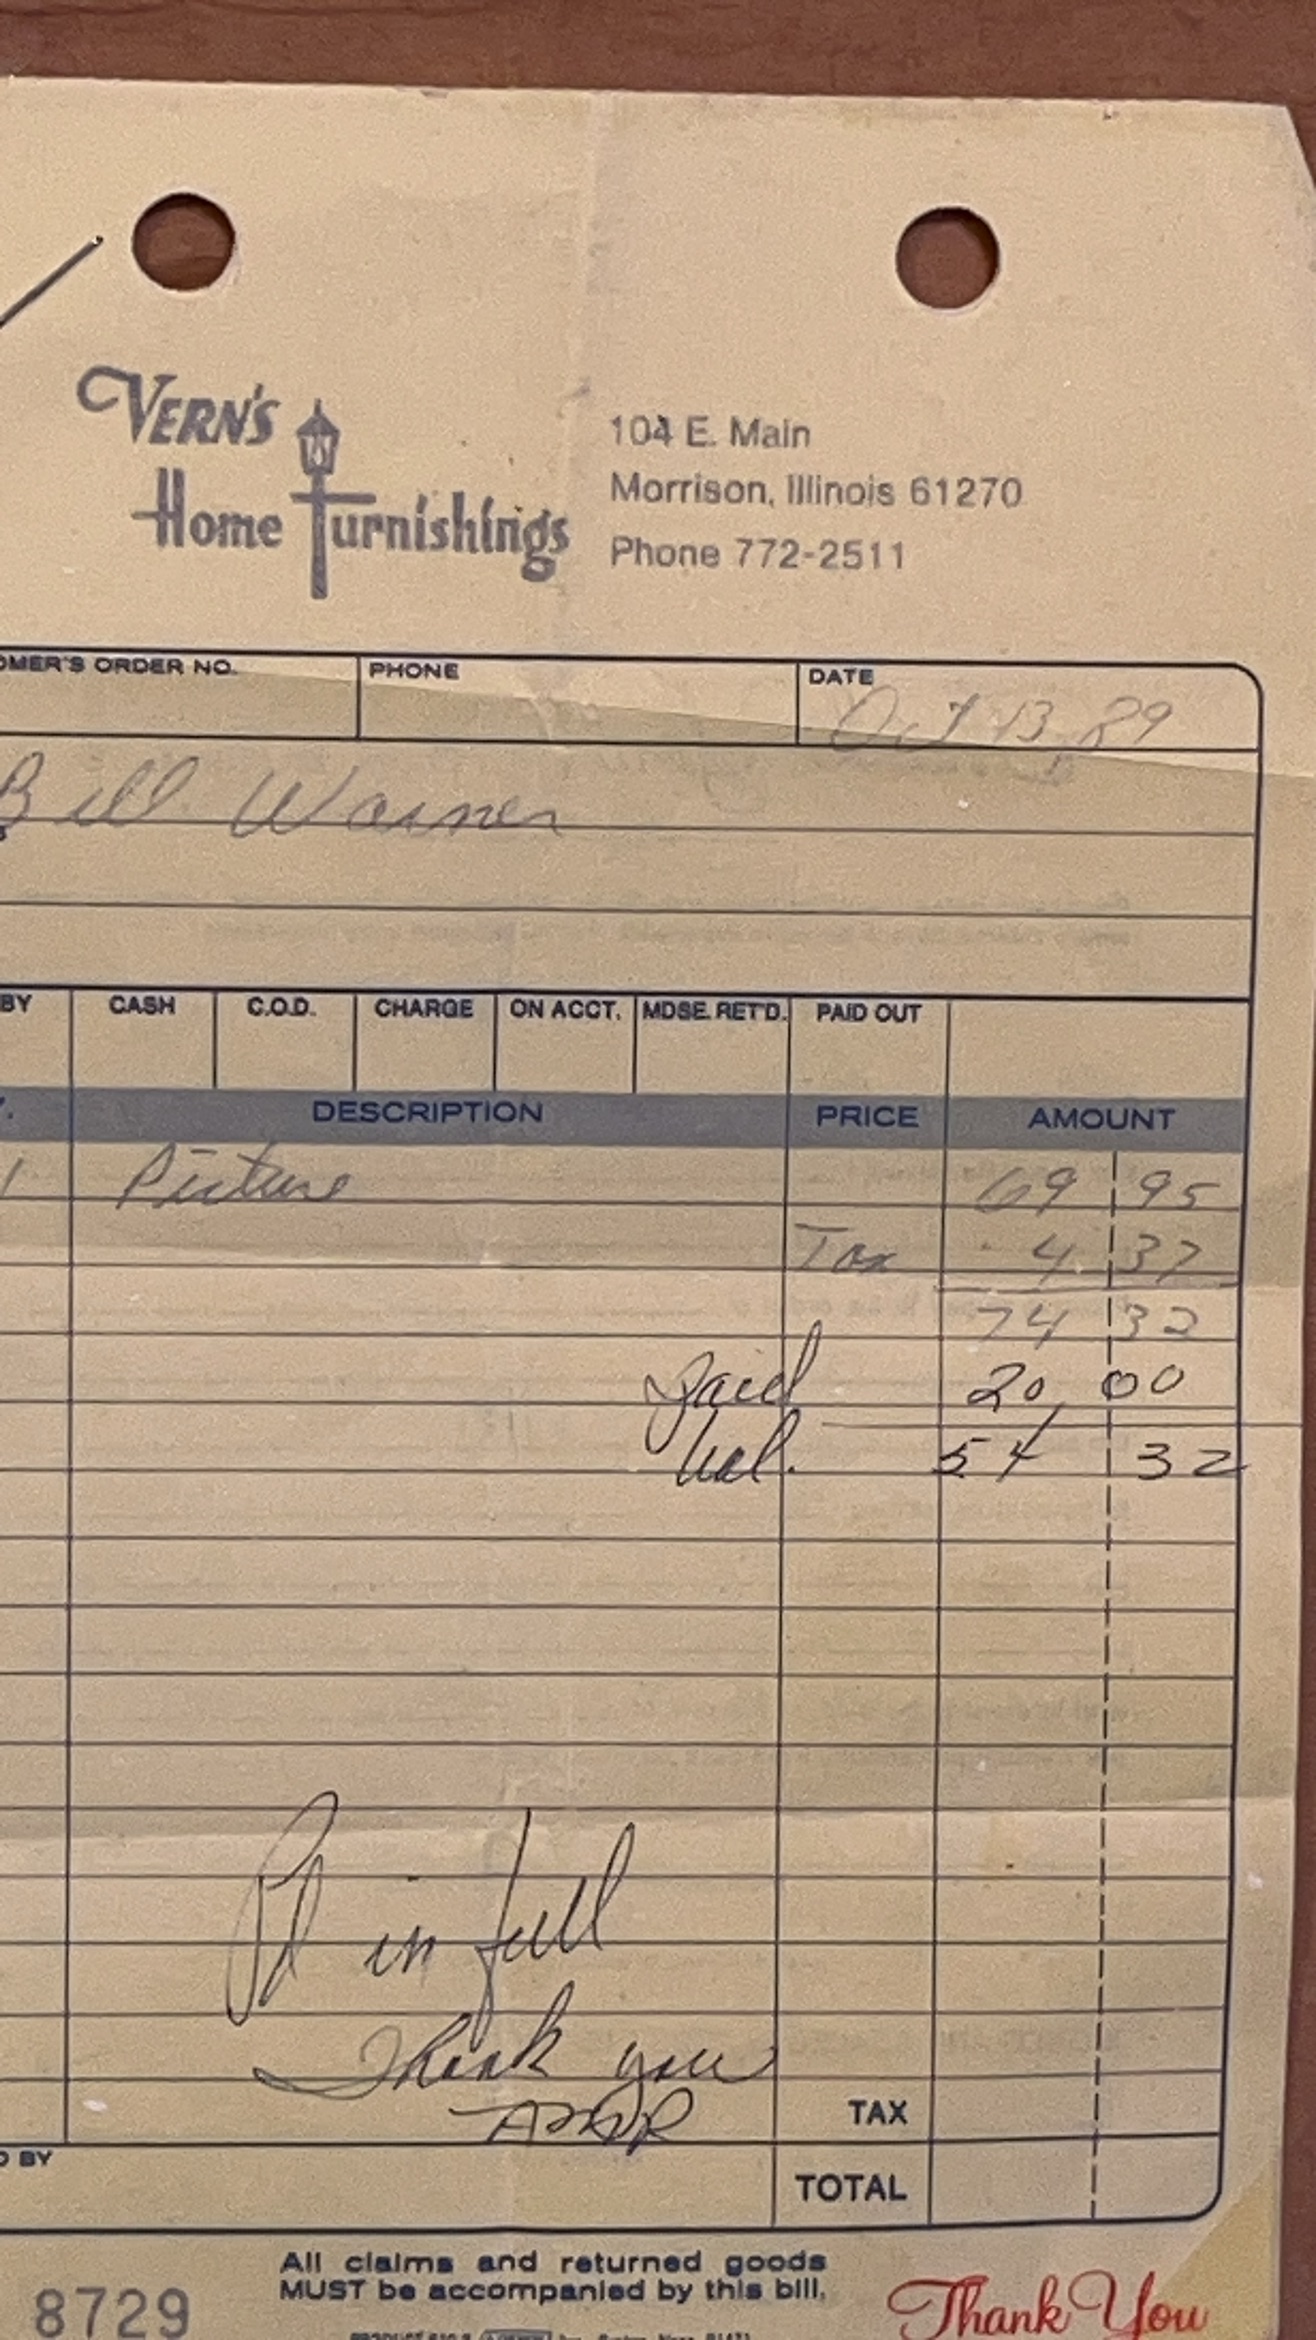 VERN'S
Home Furnishings
104 E. Main
Morrison, Illinois 61270
Phone 772-2511
OMER'S ORDER NO. PHONE DATE
Oct 13 89
Bill Warner
BY CASH C.O.D. CHARGE ON ACCT. MDSE. RET'D. PAID OUT
DESCRIPTION PRICE AMOUNT
1 Picture 69 95
Tax 4 37
74 32
Paid 20 00
bal. 54 32
Pd in full
Thank you
TAX
D BY TOTAL
All claims and returned goods
MUST be accompanied by this bill.
8729
Thank You